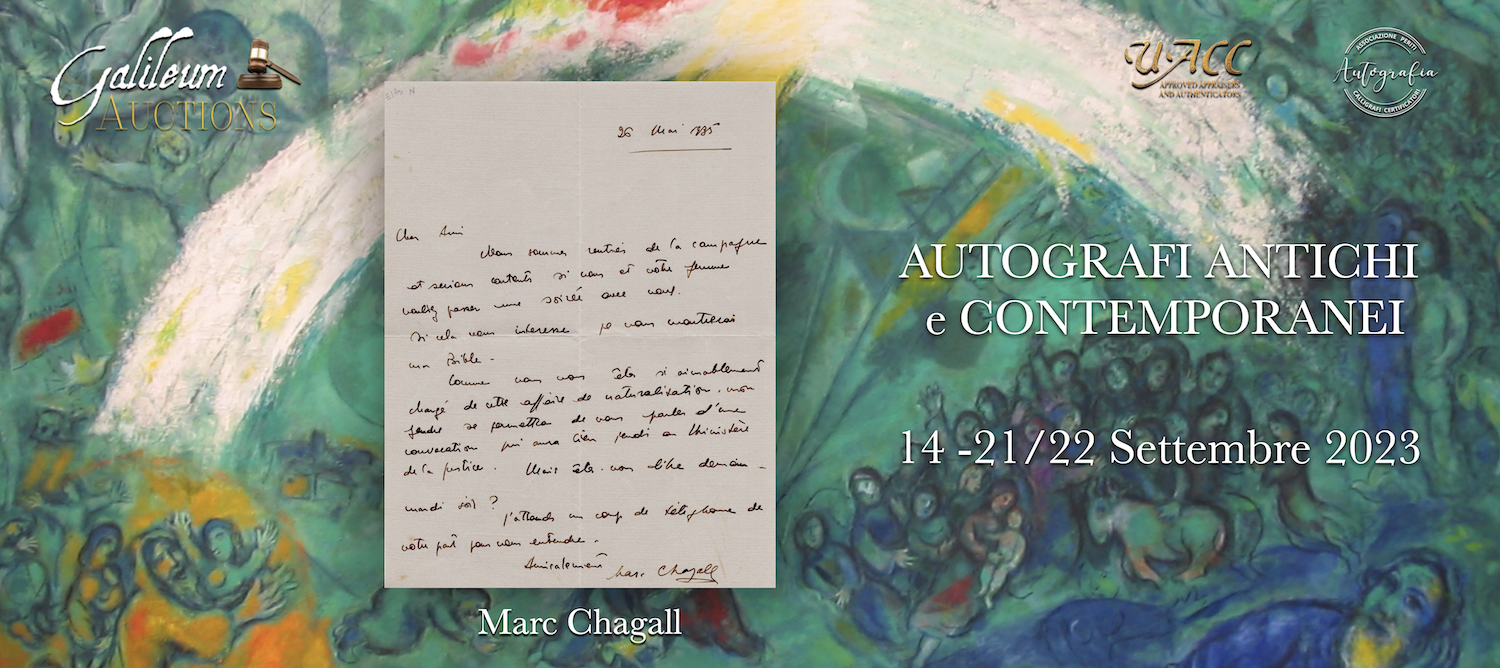 Galileum
AUCTIONS
UACC
APPROVED APPRAISERS
AND AUTHENTICATORS
ASSOCIAZIONE PERITI
Autografia
CALLIGRAFI CERTIFICATORI
26 Mai
Cher Ami
Nous sommes rentrés de la campagne
et serions contents si vous et votre femme
vouliez passer une soirée avec nous.
Si cela vous interesse je vous montrerai
ma Bible -
Comme vous vous êtes si aimablement
chargé de cette affaire de naturalisation, mon
gendre se permettra de vous parler d'une
convocation qui aura lieu jeudi au Ministère
de la justice. Mais êtes-vous libre demain -
mardi soir ?
J'attends un coup de téléphone de
votre part pour nous entendre.
Amicalement
Marc Chagall
AUTOGRAFI ANTICHI
e CONTEMPORANEI
14 -21/22 Settembre 2023
Marc Chagall